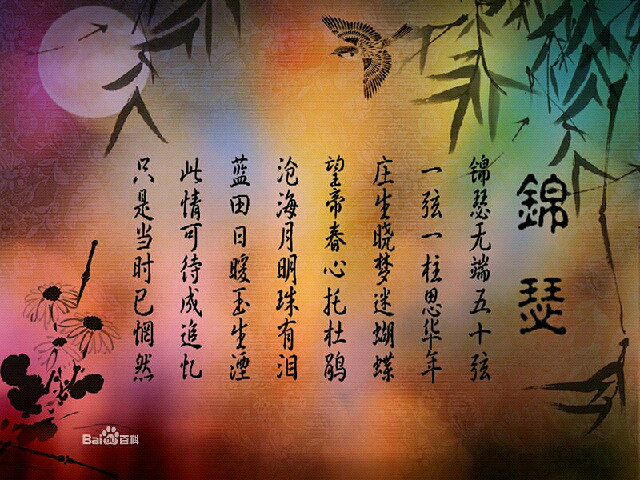 錦瑟
锦瑟无端五十弦
一弦一柱思华年
庄生晓梦迷蝴蝶
望帝春心托杜鹃
沧海月明珠有泪
蓝田日暖玉生湮
此情可待成追忆
只是当时已惘然
Bai百科